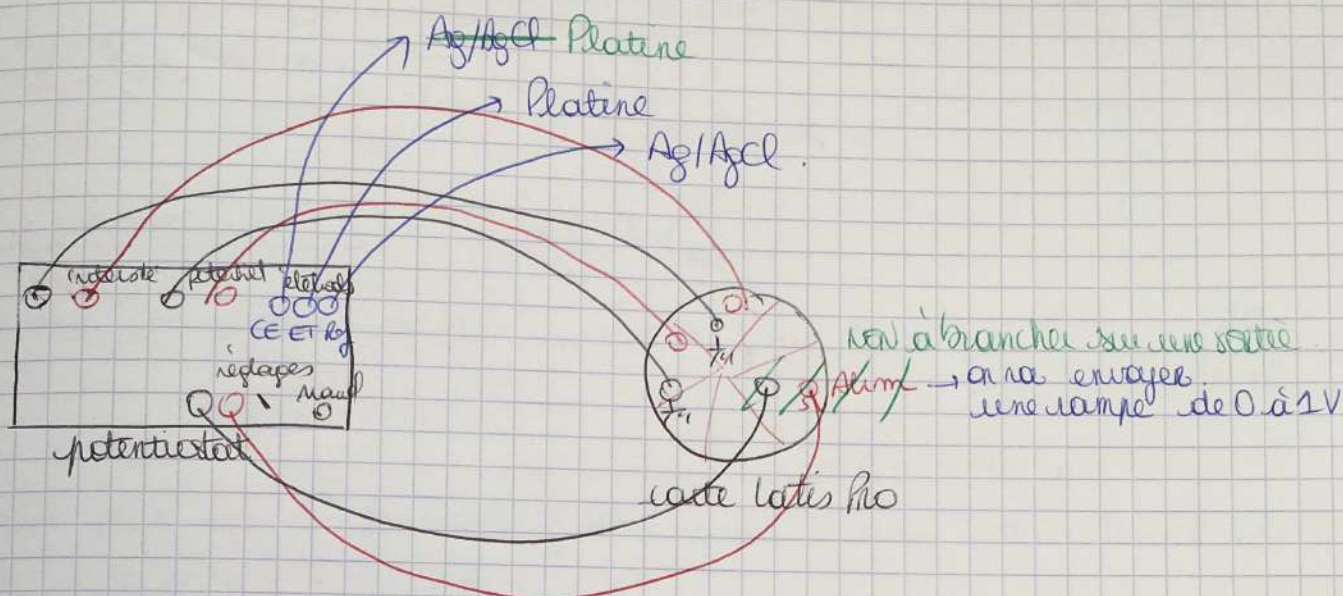 Ag/AgCl Platine
Platine
Ag/AgCl.
intensité potentiel électrodes
CE ET Ref
réglages
Manuel
potentiostat
NON à brancher sur une sortie
Alim → on va envoyer
une rampe de 0 à 1V
carte Latis Pro